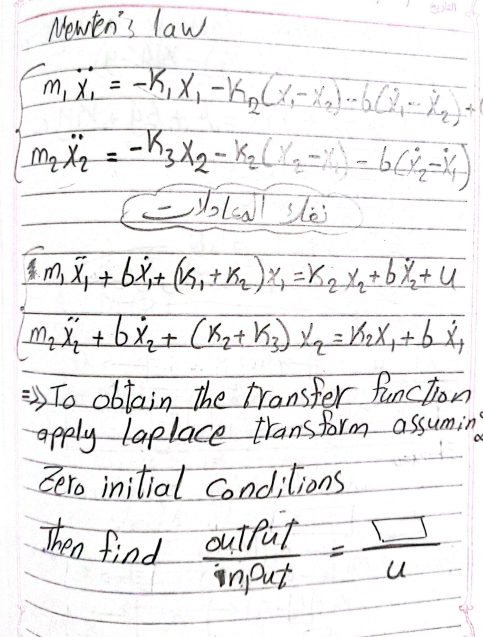 Newten's law
m₁ẍ₁ = -K₁X₁ - K₂(X₁-X₂) - b(ẋ₁-ẋ₂) +
m₂ẍ₂ = -K₃X₂ - K₂(X₂-X₁) - b(ẋ₂-ẋ₁)
المعادلات
m₁ẍ₁ + bẋ₁ + (K₁+K₂)x₁ = K₂X₂ + bẋ₂ + u
m₂ẍ₂ + bẋ₂ + (K₂+K₃)X₂ = K₂X₁ + bẋ₁
⇒ To obtain the transfer function
apply laplace transform assuming
Zero initial Conditions
Then find output/input = □/u